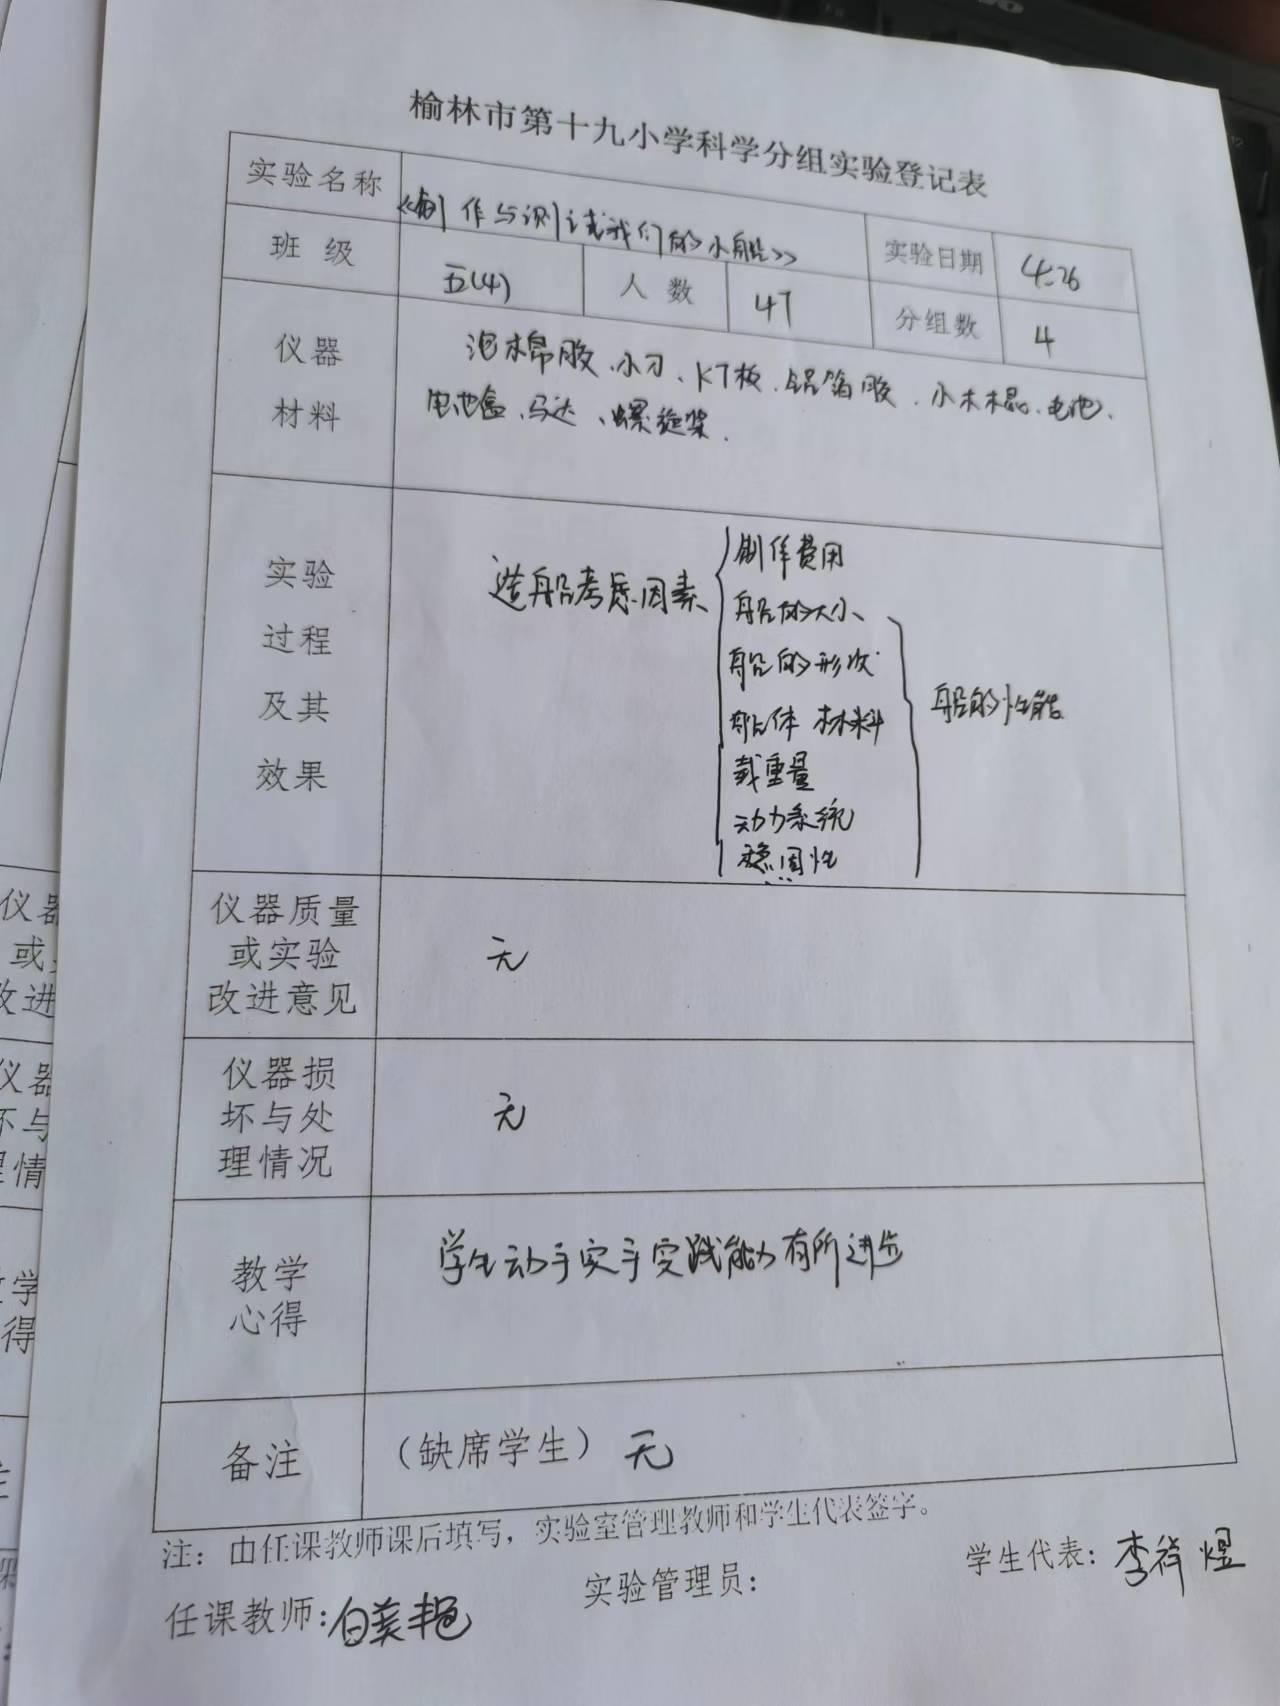 榆林市第十九小学科学分组实验登记表
实验名称 《制作与测试我们的小船》 实验日期 4.26
班 级 五(4) 人 数 47 分组数 4
仪器
材料
泡棉胶、小刀、KT板、铝箔胶、小木棍、电池、
电池盒、马达、螺旋桨.
实验
过程
及其
效果
造船考虑因素
制作费用
船的大小
船的形状
船体材料
载重量
动力系统
稳固性
……
船的性能
仪器质量
或实验
改进意见
无
仪器损
坏与处
理情况
无
教学
心得
学生动手实手实践能力有所进步
备注 （缺席学生）无
注：由任课教师课后填写，实验室管理教师和学生代表签字。
任课教师：白美艳 实验管理员： 学生代表：李祥煜
仪器
或
改进
仪器
坏与
理情
学
得